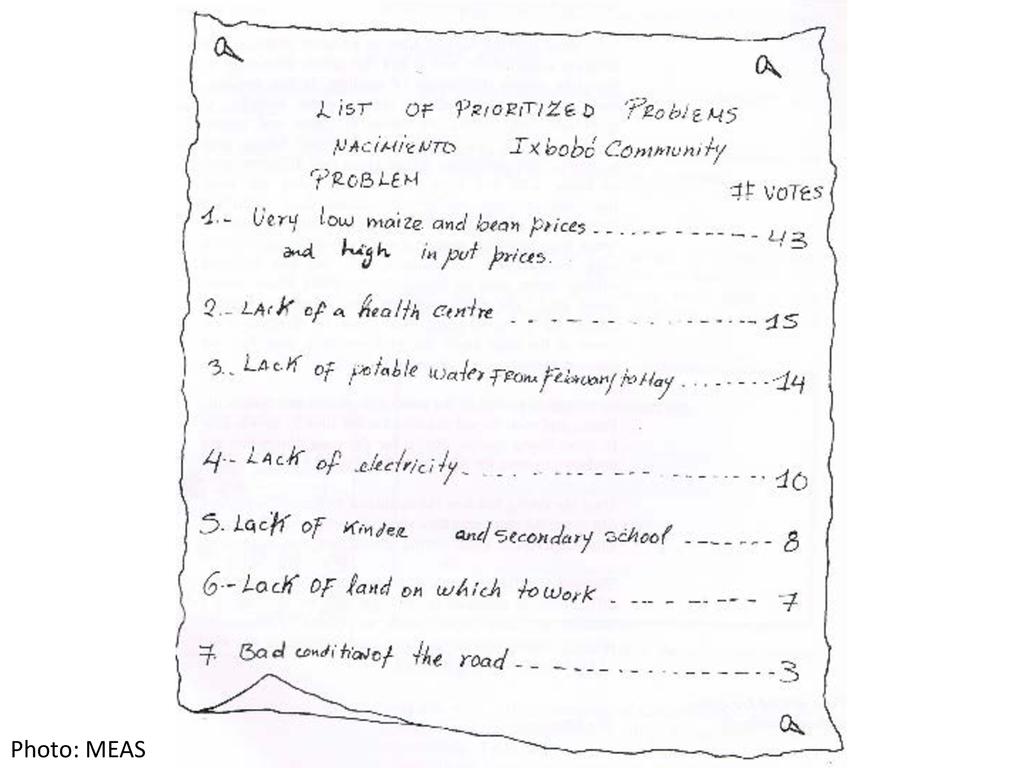 LIST OF PRIORITIZED PROBLEMS
NACIMIENTO Ixbobó Community
PROBLEM # VOTES
1.- Very low maize and bean prices ............ 43
and high in put prices.
2.- LAcK of a health centre ............ 15
3.. LAcK of potable water FRom February to May ........ 14
4.- LAcK of electricity ............ 10
5. LacK OF Kinder and secondary school ....... 8
6.- LacK OF land on which to work ......... 7
7 Bad condition of the road ............ 3
Photo: MEAS